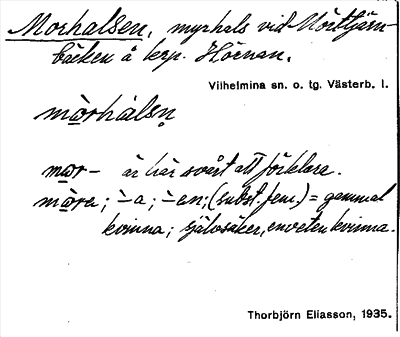 Morhalsen, myrhals vid Mörttjärn-
bäcken å krp. Hörnan.
Vilhelmina sn. o. tg. Västerb. l.
mòrhàlsn̥
mor- är här svårt att förklara.
mòra; ̀-a; ̀-en; (subst. fem.) = gammal
kvinna; självsäker, enveten kvinna.
Thorbjörn Eliasson, 1935.